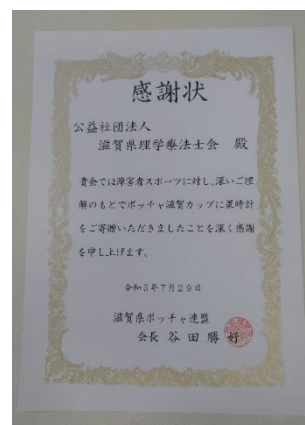 感謝状
公益社団法人
滋賀県理学療法士会 殿
貴会では障害者スポーツに対し、深いご理
解のもとでボッチャ滋賀カップに置時計
をご寄贈いただきましたことを深く感謝
を申し上げます。
令和5年7月29日
滋賀県ボッチャ連盟
会長 谷田勝好